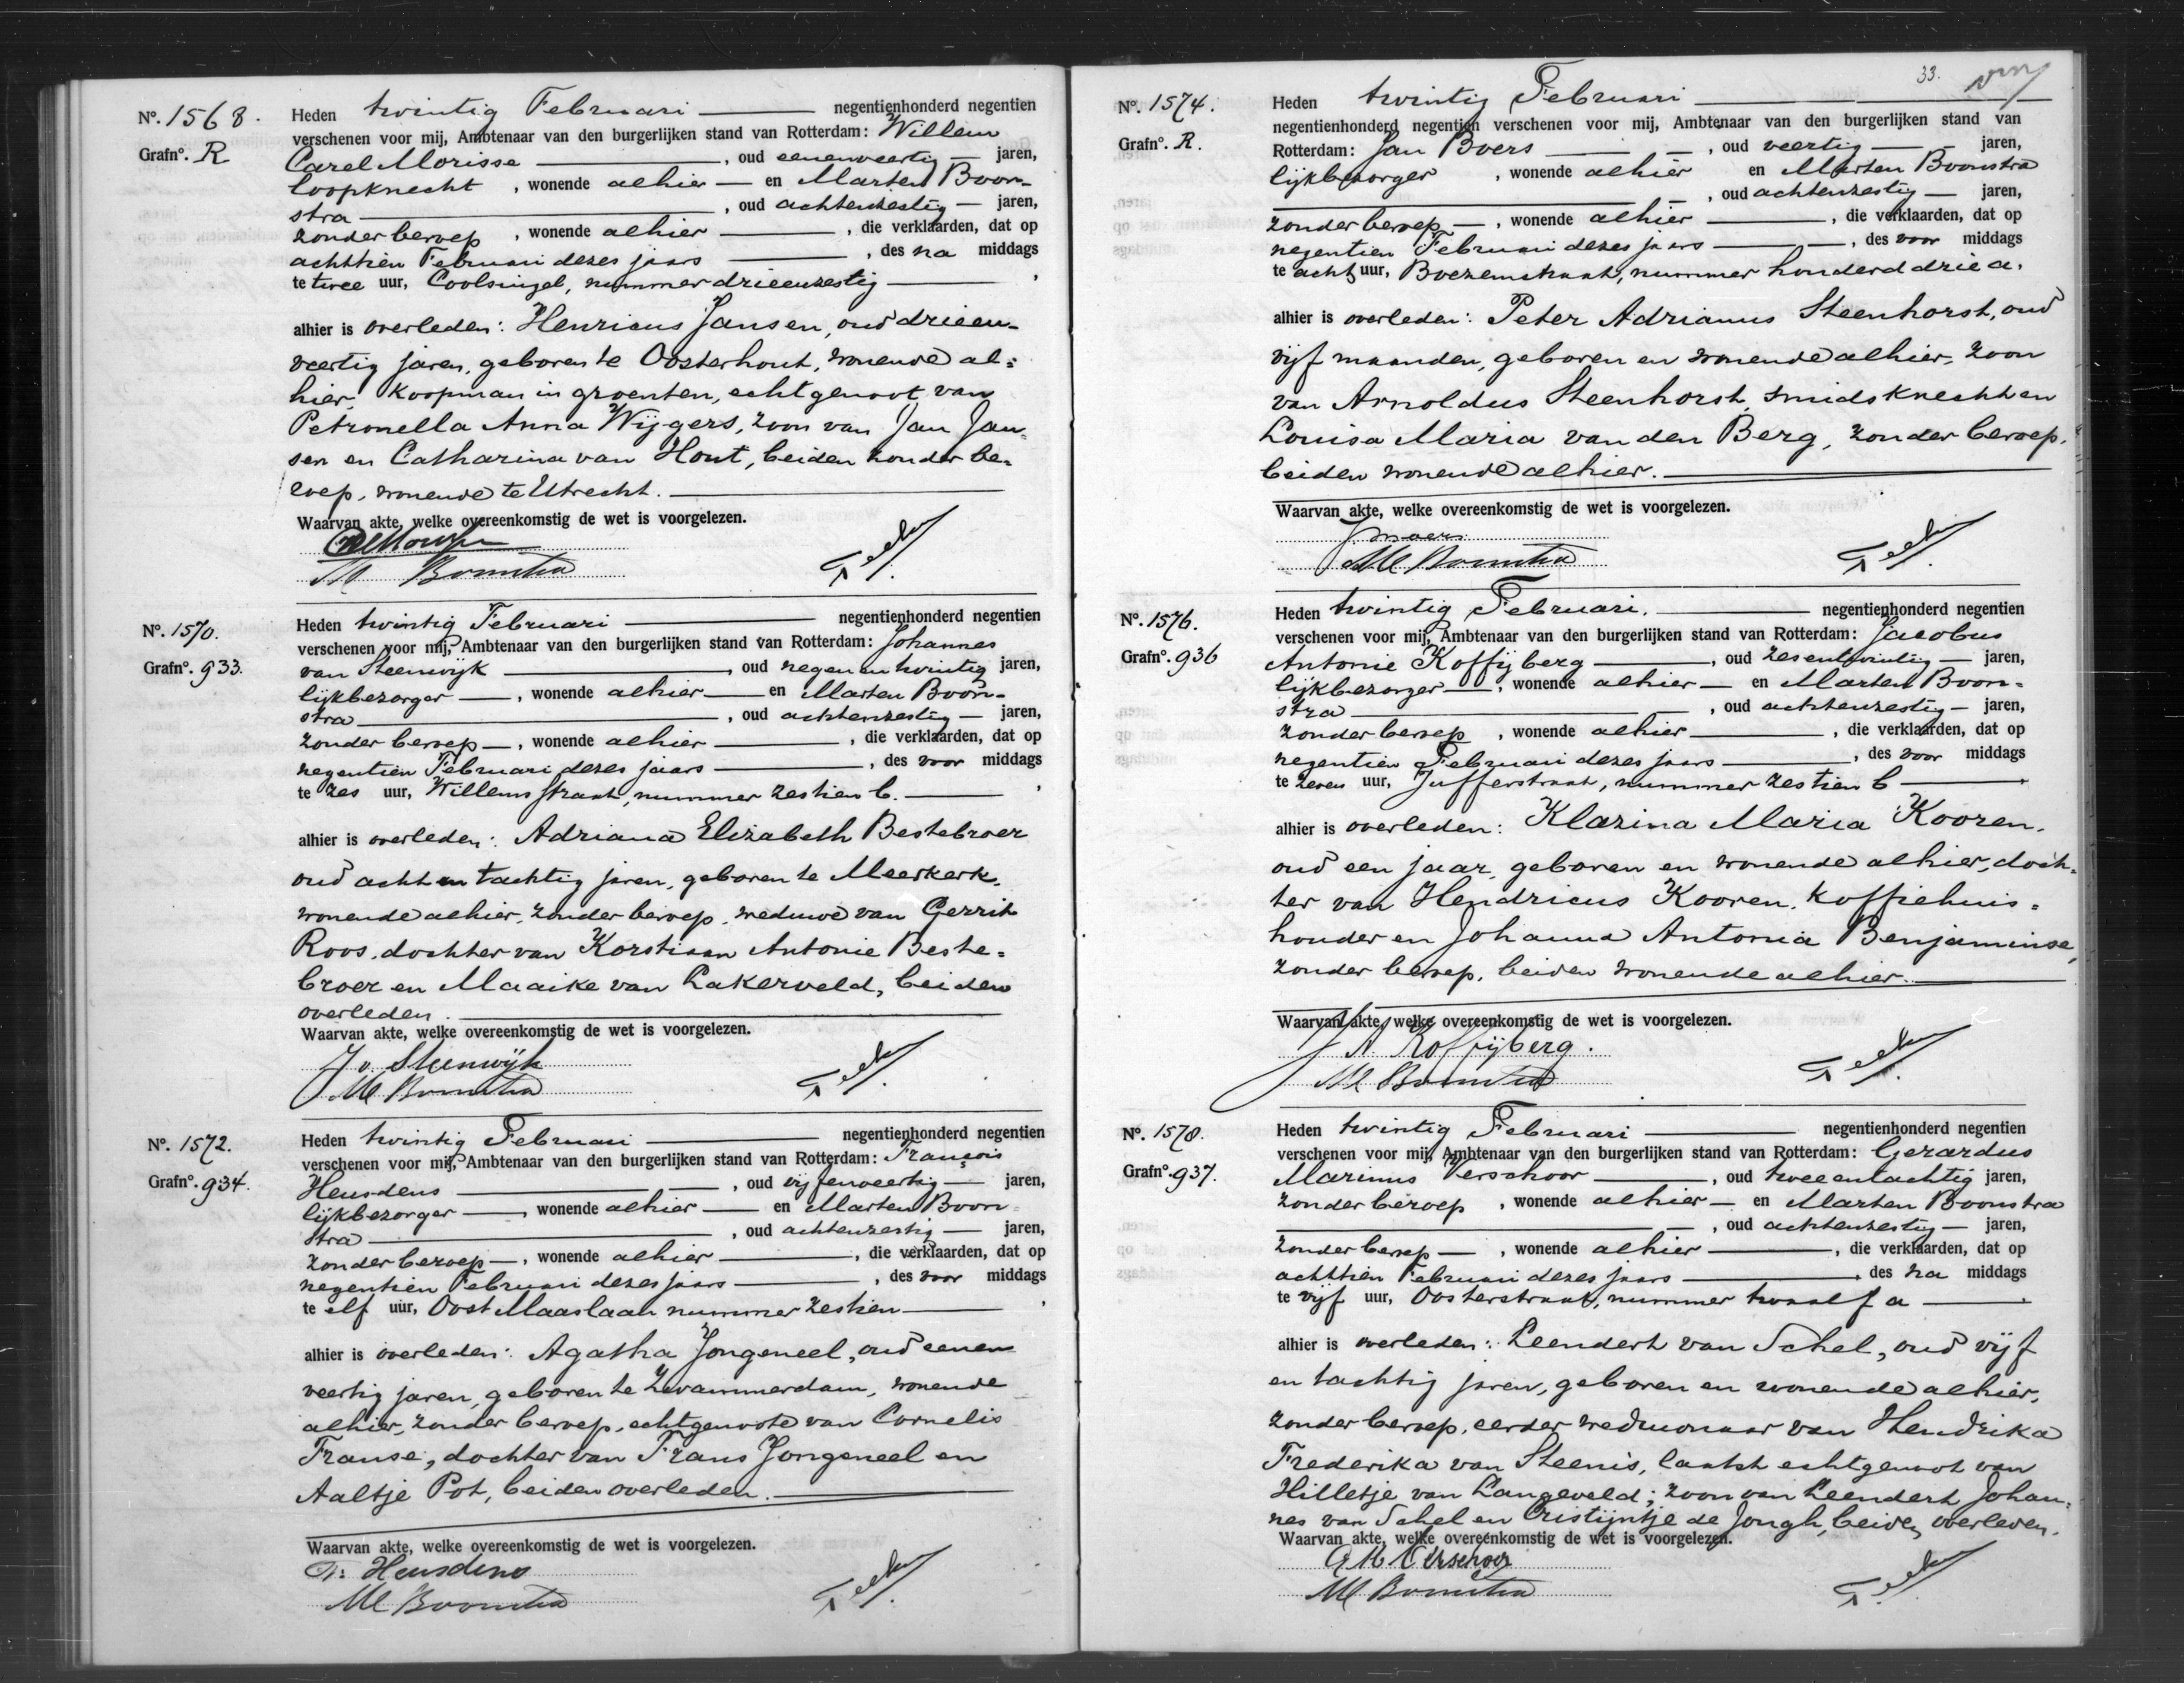 Nº. 1568.
Grafnº. R
Heden twintig Februari negentienhonderd negentien
verschenen voor mij, Ambtenaar van den burgerlijken stand van Rotterdam: Willem
Carel Morisse, oud eenenveertig jaren,
loopknecht, wonende alhier en Marten Boon-
stra, oud achtenzestig jaren,
zonder beroep, wonende alhier, die verklaarden, dat op
achttien Februari dezes jaars, des na middags
te twee uur, Coolsingel, nummer drieenzestig,
alhier is overleden: Henricus Jansen, oud drieen-
veertig jaren, geboren te Oosterhout, wonende al=
hier, koopman in groenten, echtgenoot van
Petronella Anna Wijgers, zoon van Jan Jan=
sen en Catharina van Hout, beiden zonder be=
roep, wonende te Utrecht.
Waarvan akte, welke overeenkomstig de wet is voorgelezen.
M Boonstra
Nº. 1570.
Grafnº. 933.
Heden twintig Februari negentienhonderd negentien
verschenen voor mij, Ambtenaar van den burgerlijken stand van Rotterdam: Johannes
van Steenwijk, oud negenentwintig jaren,
lijkbezorger, wonende alhier en Marten Boon-
stra, oud achtenzestig jaren,
zonder beroep, wonende alhier, die verklaarden, dat op
negentien Februari dezes jaars, des voor middags
te zes uur, Willemstraat, nummer zestien b.,
alhier is overleden: Adriana Elizabeth Bestebroer
oud achtentachtig jaren, geboren te Meerkerk,
wonende alhier, zonder beroep, weduwe van Gerrit
Roos, dochter van Korstiaan Antonie Beste=
broer en Maaike van Lakerveld, beiden
overleden.
Waarvan akte, welke overeenkomstig de wet is voorgelezen.
J v. Steenwijk
M Boonstra
Nº. 1572.
Grafnº. 934.
Heden twintig Februari negentienhonderd negentien
verschenen voor mij, Ambtenaar van den burgerlijken stand van Rotterdam: François
Heusdens, oud vijfenveertig jaren,
lijkbezorger, wonende alhier en Marten Boon=
stra, oud achtenzestig jaren,
zonder beroep, wonende alhier, die verklaarden, dat op
negentien Februari dezes jaars, des voor middags
te elf uur, Oost Maaslaan nummer zestien,
alhier is overleden: Agatha Jongeneel, oud eenen
veertig jaren, geboren te Zwammerdam, wonende
alhier, zonder beroep, echtgenoote van Cornelis
Franse, dochter van Frans Jongeneel en
Aaltje Pot, beiden overleden.
Waarvan akte, welke overeenkomstig de wet is voorgelezen.
Fr: Heusdens
M Boonstra
33.
Nº. 1574.
Grafnº. R.
Heden twintig Februari
negentienhonderd negentien verschenen voor mij, Ambtenaar van den burgerlijken stand van
Rotterdam: Jan Boers, oud veertig jaren,
lijkbezorger, wonende alhier en Marten Boonstra
, oud achtenzestig jaren,
zonder beroep, wonende alhier, die verklaarden, dat op
negentien Februari dezes jaars, des voor middags
te acht uur, Boezemstraat, nummer honderd drie a.
alhier is overleden: Peter Adrianus Steenhorst, oud
vijf maanden, geboren en wonende alhier, zoon
van Arnoldus Steenhorst, smidsknecht en
Louisa Maria van den Berg, zonder beroep,
beiden wonende alhier.
Waarvan akte, welke overeenkomstig de wet is voorgelezen.
M Boonstra
Nº. 1576.
Grafnº. 936
Heden twintig Februari. negentienhonderd negentien
verschenen voor mij, Ambtenaar van den burgerlijken stand van Rotterdam: Jacobus
Antonie Koffijberg, oud zesentwintig jaren,
lijkbezorger, wonende alhier en Marten Boon=
stra, oud achtenzestig jaren,
zonder beroep, wonende alhier, die verklaarden, dat op
negentien Februari dezes jaars, des voor middags
te zeven uur, Jufferstraat, nummer zestien b,
alhier is overleden: Klazina Maria Kooren,
oud een jaar, geboren en wonende alhier, doch=
ter van Hendricus Kooren, koffiehuis=
houder en Johanna Antonia Benjaminse,
zonder beroep, beiden wonende alhier.
Waarvan akte, welke overeenkomstig de wet is voorgelezen.
J A Koffijberg.
M Boonstra
Nº. 1578.
Grafnº. 937.
Heden twintig Februari negentienhonderd negentien
verschenen voor mij, Ambtenaar van den burgerlijken stand van Rotterdam: Gerardus
Marinus Verschoor, oud tweeentachtig jaren,
zonder beroep, wonende alhier en Marten Boonstra
, oud achtenzestig jaren,
zonder beroep, wonende alhier, die verklaarden, dat op
achttien Februari dezes jaars, des na middags
te vijf uur, Oosterstraat, nummer twaalf a.
alhier is overleden: Leendert van Schel, oud vijf
en tachtig jaren, geboren en wonende alhier,
zonder beroep, eerder weduwnaar van Hendrika
Frederika van Steenis, laatst echtgenoot van
Hilletje van Langeveld; zoon van Leendert Johan=
nes van Schel en Cristijntje de Jongh, beiden overleden.
Waarvan akte, welke overeenkomstig de wet is voorgelezen.
G M Verschoor
M Boonstra